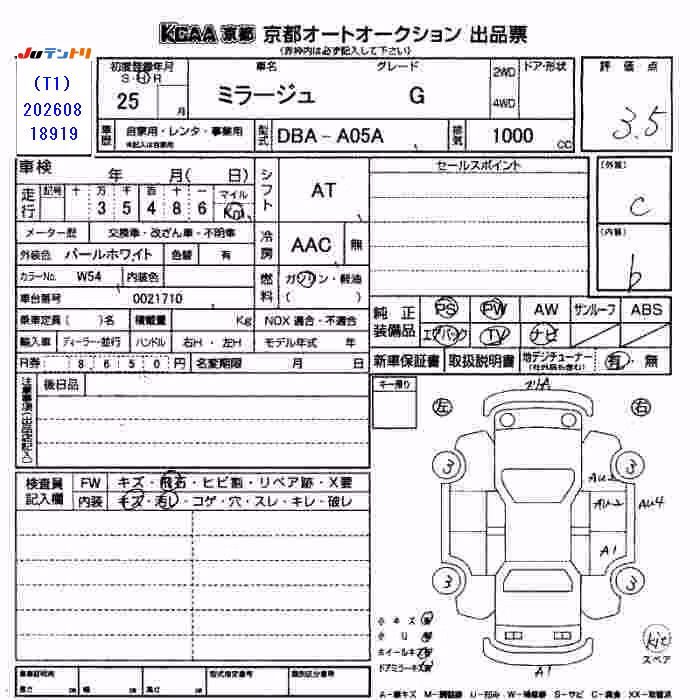 KCAA 京都 京都オートオークション 出品票
(赤枠内は必ず記入して下さい)
JUテントリ
(T1)
202608
18919
初度登録年月 車名 グレード 2WD ドア・形状 評価点
S・H・R
25 月 ミラージュ G 4WD 3.5
車歴 自家用・レンタ・事業用 型式 DBA-A05A 排気 1000 CC
未記入は自家用
車検 年 月( 日) シフト AT セールスポイント (外装)
C
走行 記号 十 万 千 百 十 一 マイル
3 5 4 8 6 Km
メーター歴 交換車・改ざん車・不明車 冷房 AAC 無 (内装)
b
外装色 パールホワイト 色替 有
カラーNo. W54 内装色 燃料 ガソリン・軽油
( )
車台番号 0021710
純正装備品 PS PW AW サンルーフ ABS
エアバック TV ナビ
乗車定員( )名 積載量 Kg NOX 適合・不適合
輸入車 ディーラー・並行 ハンドル 右H・左H モデル年式 年
新車保証書 取扱説明書 地デジチューナー 有・無
(社外品も含む)
R券 8650円 名変期限 月 日
注意事項(出品店記入) 後日品
キー滞り
左 右
検査員記入欄 FW キズ・飛石・ヒビ割・リペア跡・X要
内装 キズ・汚レ・コゲ・穴・スレ・キレ・破レ
3 3
AU2
AU4
A1
3 3
小キズ
ホイールキズ
ドアミラーキズ
A1
kit
スペア
長さ cm 幅 cm 高さ cm 型式指定番号 類別区分番号